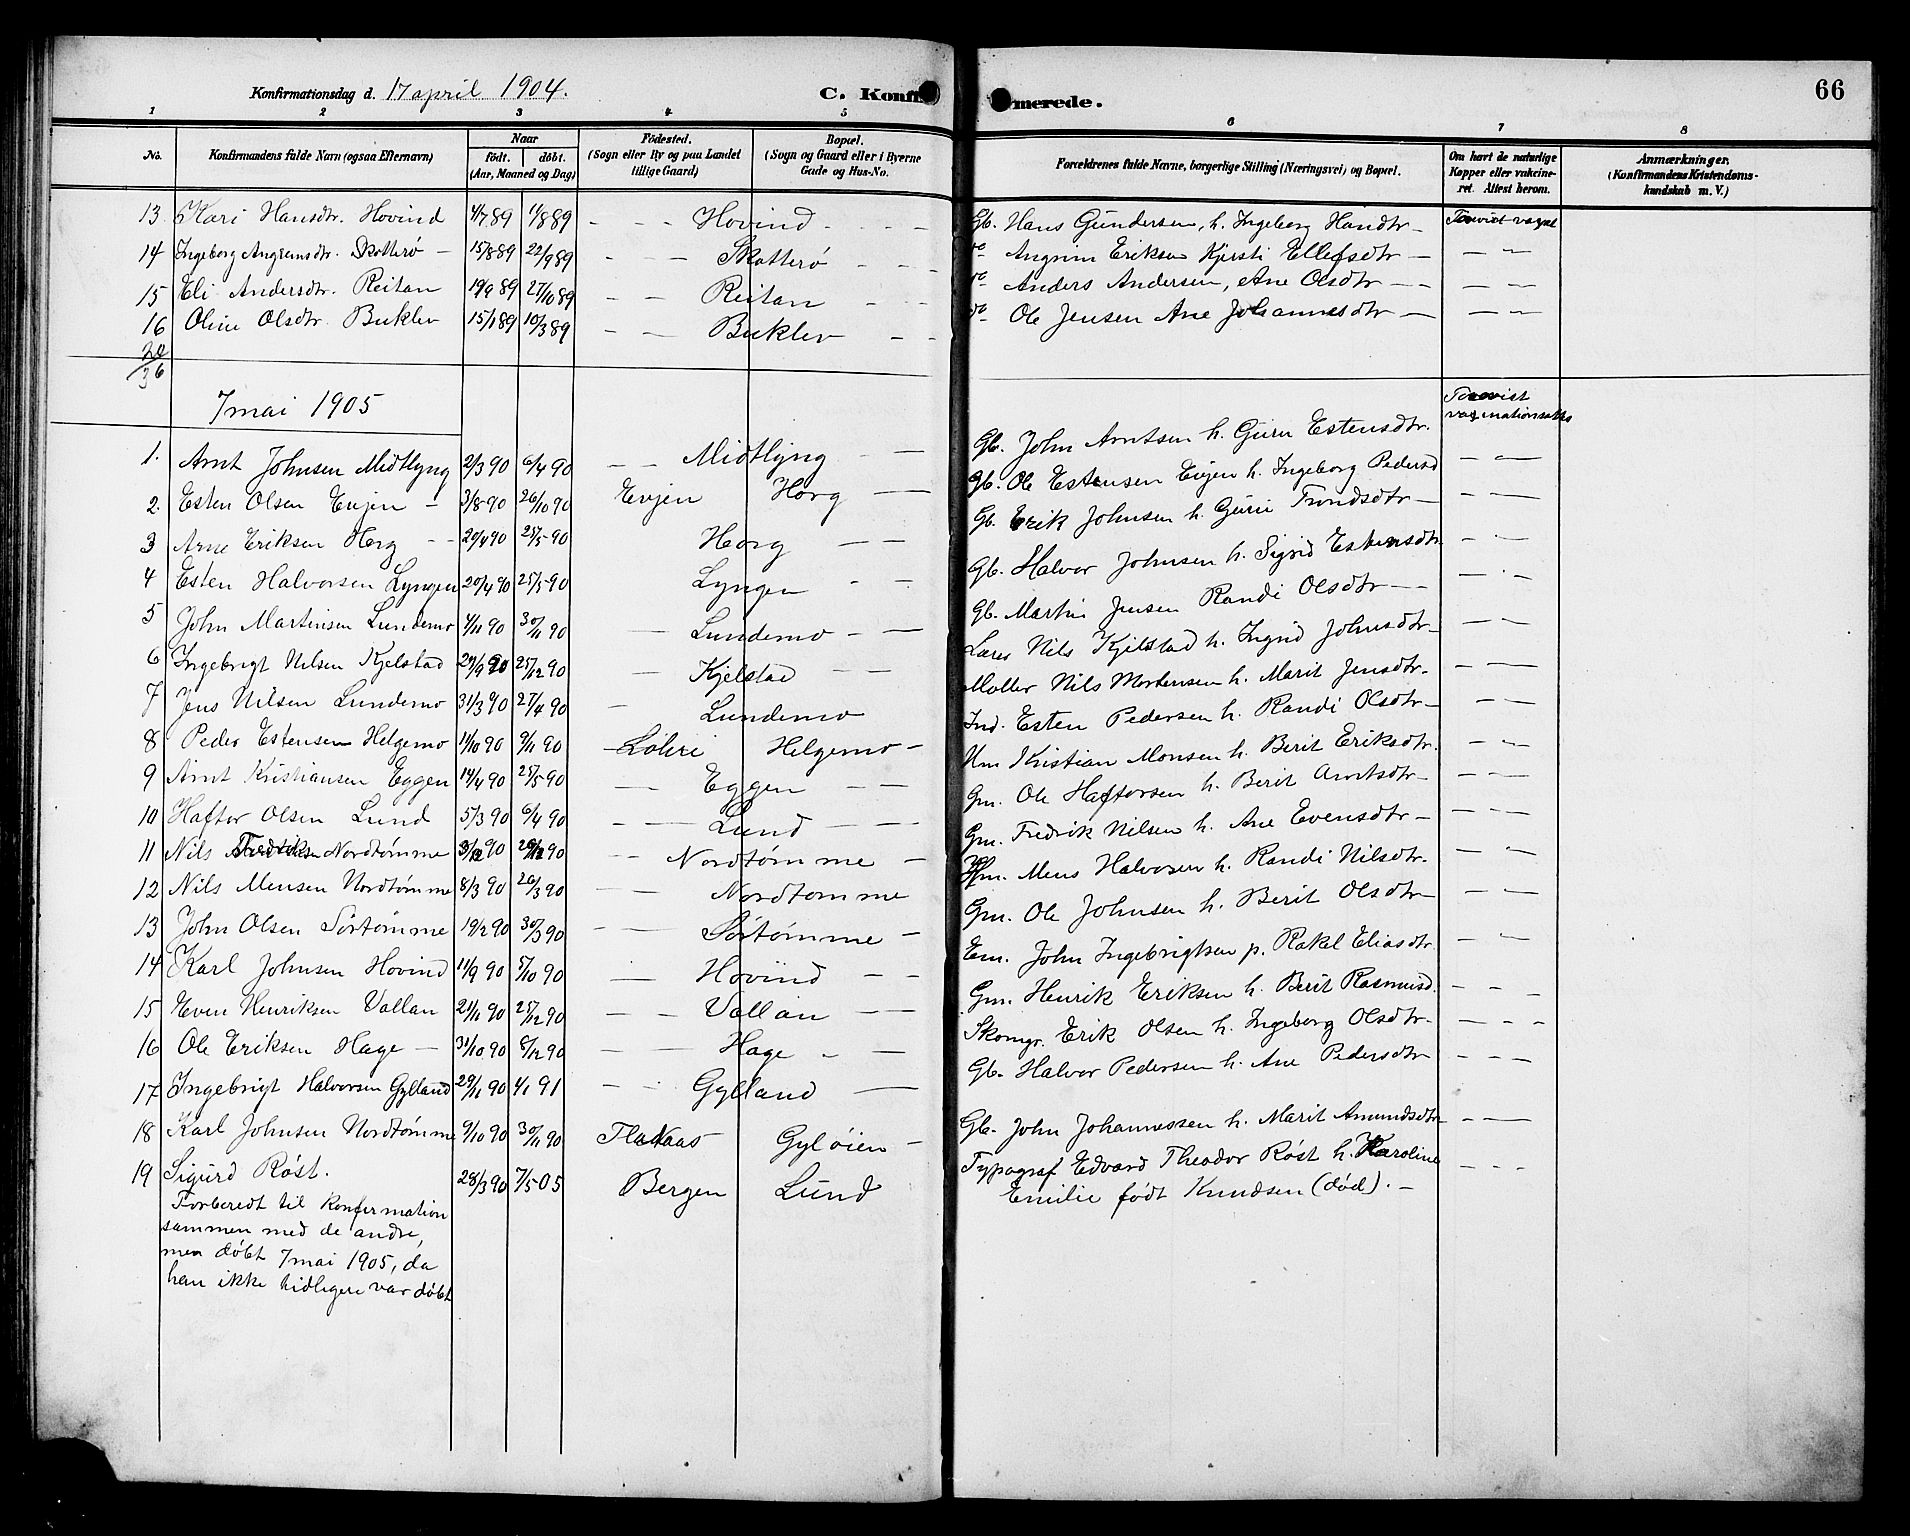 Konfirmationsdag d. 17 april 1904. C. Konfirmerede. 66
1 2 3 4 5 6 7 8
No. Konfirmandens fulde Navn (ogsaa Efternavn) Naar født. døbt. (Aar, Maaned og Dag) Fødested. (Sogn eller By og paa Landet tillige Gaard) Bopæl. (Sogn og Gaard eller i Byerne Gade og Hus-No. Forældrenes fulde Navne, borgerlige Stilling (Næringsvei) og Bopæl. Om havt de naturlige Kopper eller vakcineret. Attest herom. Anmærkninger. (Konfirmandens Kristendomskundskab m. V.)
13. Kari Hansdtr. Hovind 4/7 89 11/8 89 - - - Hovind - - - Gb. Hans Gundersen, h. Ingeborg Hansdtr -
14 Ingeborg Angrimsdtr. Skotterø - 15/8 89 22/9 89 - - Skotterø - - - do Angrim Eriksen Kjersti Ellefsdtr - - " -
15 Eli Andersdtr. Reitan 19/9 89 27/10 89 - - Reitan - - do Anders Andersen, Ane Olsdtr - - - " -
16 Oline Olsdtr. Buklev 15/1 89 10/3 89 - - Buklev - - do Ole Jensen Ane Johannesdtr - - " -
20
36
7 mai 1905
1. Arnt Johnsen Midtlyng 2/3 90 6/4 90 - - Midtlyng - - Gb. John Arntsen h. Guru Estensdtr. - " -
2. Esten Olsen Evjen - 3/8 90 26/10 90 Evjen Horg - Gb. Ole Estensen Evjen h. Ingeborg Pedersd - " -
3 Arne Eriksen Horg - - 20/4 90 25/5 90 Horg - - Gb. Erik Johnsen h. Guru Trondsdtr - - " -
4 Esten Halvorsen Lyngen 20/4 90 25/5 90 Lyngen - - Gb. Halvor Johnsen h. Sigrid Estensdtr - " -
5 John Martinsen Lundemo 4/11 90 30/11 90 - Lundemo - - Gb. Martin Jensen Randi Olsdtr - - - " -
6 Ingebrigt Nilsen Kjelstad 25/12 90 - Kjelstad - - Nils Kjelstad h. Ingrid Johnsdtr - - " -
7 Jens Nilsen Lundemo 31/3 90 27/4 90 - Lundemo Møller Nils Mortensen h. Marit Jensdtr. - " -
8 Peder Estensen Helgemo 11/10 90 9/11 90 Helgemo - Ind. Esten Pedersen h. Randi Olsdtr - - " -
9 Arnt Kristiansen Eggen 14/4 90 25/5 90 - Eggen - - Kristian Monsen h. Berit Eriksdtr. - " -
10 Haftor Olsen Lund 5/3 90 6/4 90 - - Lund - - Gm. Ole Haftorsen h. Berit Arntsdtr - - " -
11 Nils Fredriksen Nordtømme 90 90 - - Nordtømme - Gm. Fredrik Nilsen h. Ane Evensdtr - - " -
12 Nils Mensen Nordtømme 8/3 90 26/3 90 - - Nordtomme Mens Halvorsen h. Randi Nilsdtr. - " -
13 John Olsen Sørtømme 19/2 90 30/3 90 - - Sørtømme - Gm. Ole Johnsen h. Berit Olsdtr - - " -
14 Karl Johnsen Hovind 11/9 90 5/10 90 - Hovind - - Em. John Ingebrigtsen p. Rakel Eliasdtr - " -
15 Even Henriksen Vollan 21/11 90 25/12 90 - - Vollan - - Gm. Henrik Eriksen h. Berit Rasmusd. - - -
16 Ole Eriksen Hage - 31/10 90 8/12 90 - - Hage - - Skomgr. Erik Olsen h. Ingeborg Olsdtr - - - -
17 Ingebrigt Halvorsen Gylland 29/11 90 4/1 91 - - Gylland - Gb. Halvor Pedersen h. Ane Pedersdtr - - -
18 Karl Johnsen Nordtømme 9/10 90 30/11 90 Flaknaas Gyløien - Gb. John Johannessen h. Marit Amundsdtr - - -
19 Sigurd Røst. 28/3 90 7/5 05 Bergen Lund Typograf Edvard Theodor Røst h. Karoline - - -
Emilie født Knudsen (død). -
Forberedt til konfirmation
sammen med de andre,
men døbt 7 mai 1905, da
han ikke tidligere var døbt